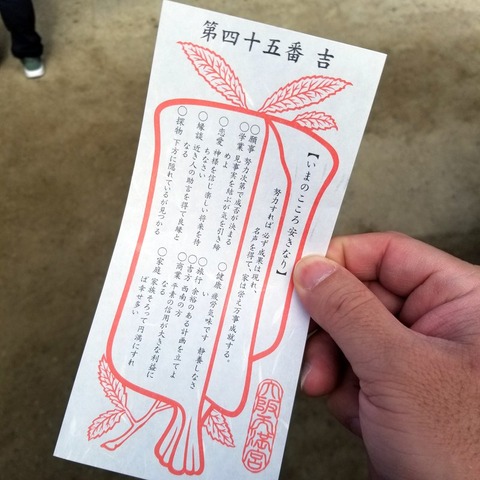 第四十五番 吉
【いまのこころ安きなり】
努力すれば必ず成果は現れ、
名声を得て、家は栄え万事成就する。
○願事 努力次第で成否が決まる
○学業 見事実を結ぶが気を引き締
めよ
○恋愛 神様を信じ楽しい将来を待
ちなさい
○縁談 近き人の助言を得て良縁と
なる
○探物 下方に隠れているが見つかる
○健康 疲労気味です 静養しなさ
い
○旅行 余裕のある計画を立てよ
○吉方 西南の方
○商業 平素の信用が大きな利益に
なる
○家庭 家族そろって円満にすれ
ば幸せ多い
大阪天満宮